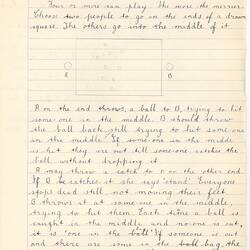 Four or more can play. The more the merrier.
Choose two people to go on the ends of a drawn
square. The others go into the middle of it.
A B
A on the end throws a ball to B, trying to hit
some-one in the middle. B should throw
the ball back still trying to hit some-one
in the middle. If some-one in the middle
is hit they are out till some-one catches the
ball without dropping it.
A may throw a catch to B on the other end.
If B catches it she says "stand." Everyone
stops dead still, not moving their feet.
B throws it at some-one in the middle,
trying to hit them. Each time a ball is
caught in the middle and no-one is out
it is "one in the ball." If someone is out
and there are some in the ball-bag, the